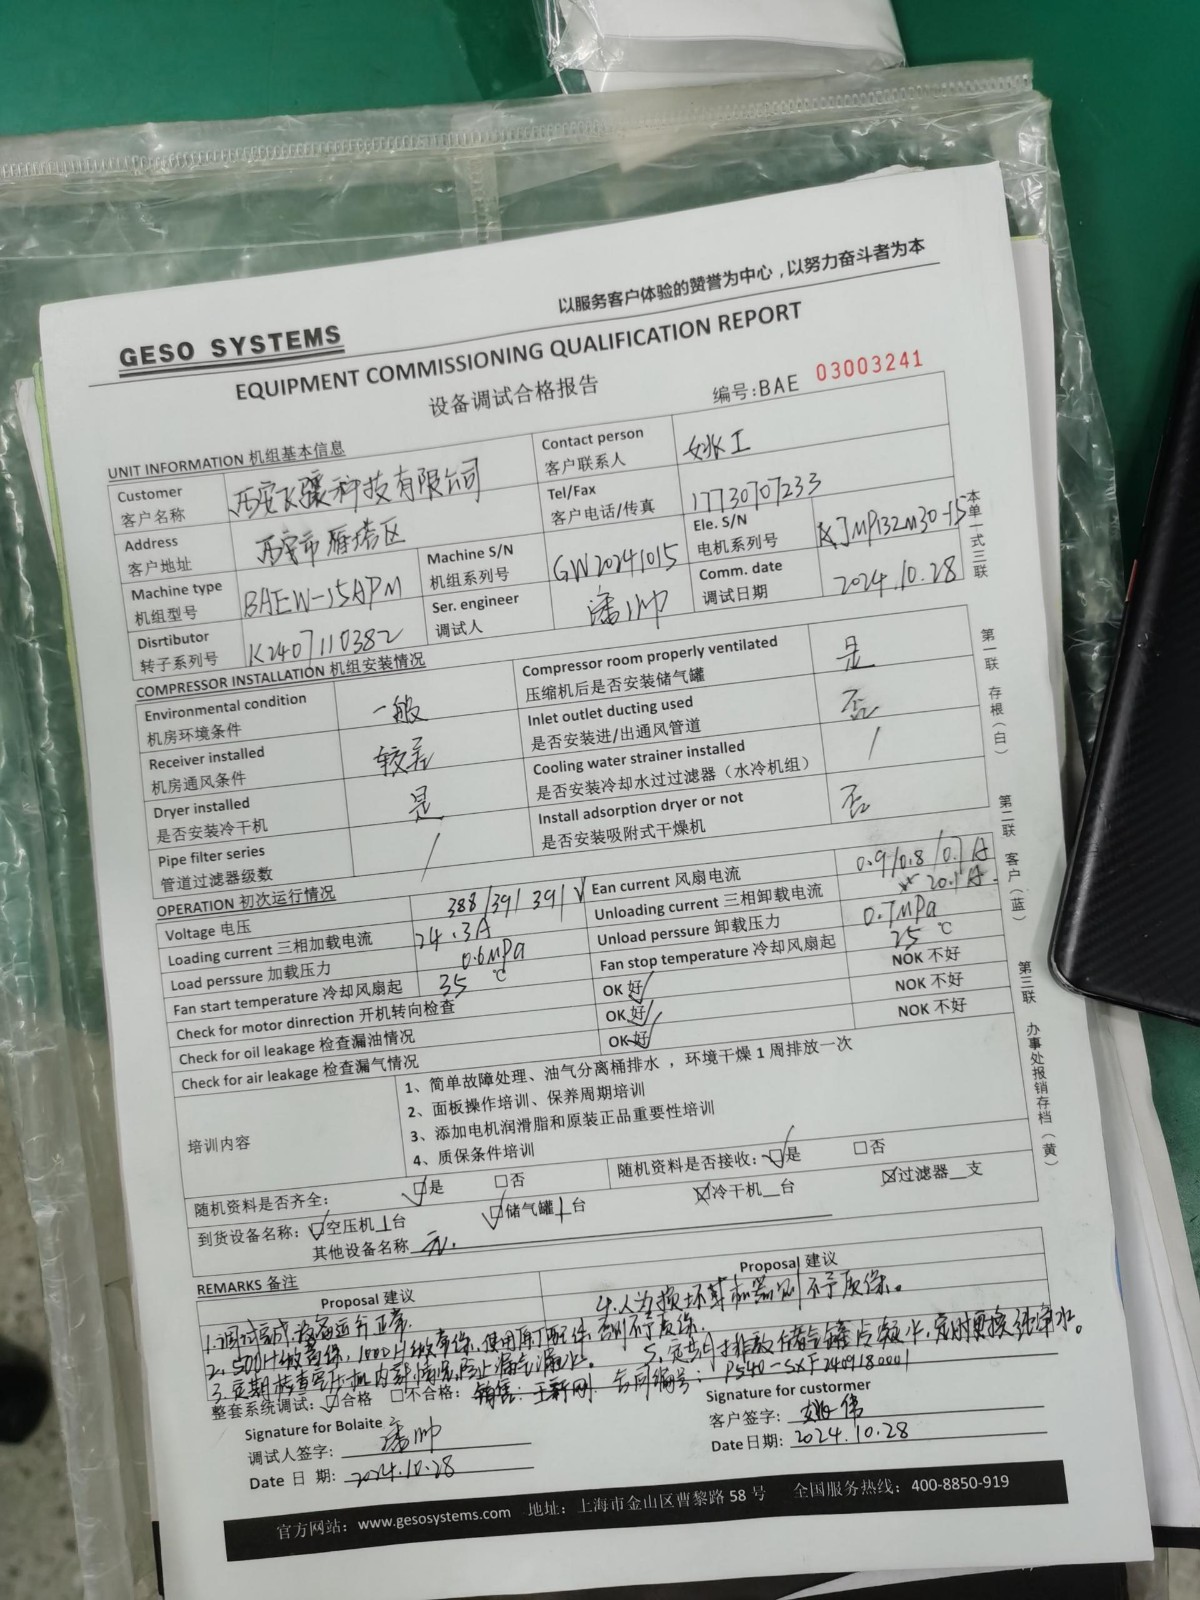 以服务客户体验的赞誉为中心，以努力奋斗者为本
GESO SYSTEMS
EQUIPMENT COMMISSIONING QUALIFICATION REPORT
设备调试合格报告
编号:BAE 03003241
UNIT INFORMATION 机组基本信息
Customer 客户名称 西安飞骧科技有限公司
Contact person 客户联系人 姚工
Address 客户地址 西安市雁塔区
Tel/Fax 客户电话/传真 17730707233
Machine type 机组型号 BAEW-15APM
Machine S/N 机组系列号 GW20241015
Ele. S/N 电机系列号 XJMP132M30-15
Disrtibutor 转子系列号 K2407110382
Ser. engineer 调试人 潘帅
Comm. date 调试日期 2024.10.28
COMPRESSOR INSTALLATION 机组安装情况
Environmental condition 机房环境条件 一般
Compressor room properly ventilated 压缩机后是否安装储气罐 是
Receiver installed 机房通风条件 较差
Inlet outlet ducting used 是否安装进/出通风管道 否
Dryer installed 是否安装冷干机 是
Cooling water strainer installed 是否安装冷却水过过滤器（水冷机组） /
Pipe filter series 管道过滤器级数 /
Install adsorption dryer or not 是否安装吸附式干燥机 否
OPERATION 初次运行情况
Voltage 电压 388/391/391 V
Ean current 风扇电流 0.9/0.8/0.7 A
Loading current 三相加载电流 24.3A
Unloading current 三相卸载电流 20.1 A.
Load perssure 加载压力 0.6MPa
Unload perssure 卸载压力 0.7MPa
Fan start temperature 冷却风扇起 35 ℃
Fan stop temperature 冷却风扇起 25 ℃
Check for motor dinrection 开机转向检查 OK 好 NOK 不好
Check for oil leakage 检查漏油情况 OK 好 NOK 不好
Check for air leakage 检查漏气情况 OK 好 NOK 不好
培训内容
1、简单故障处理、油气分离桶排水，环境干燥 1 周排放一次
2、面板操作培训、保养周期培训
3、添加电机润滑脂和原装正品重要性培训
4、质保条件培训
随机资料是否齐全： ☑是 □否 随机资料是否接收：☑是 □否
到货设备名称：☑空压机1台 ☑储气罐1台 ☒冷干机_台 ☒过滤器_支
其他设备名称 无.
REMARKS 备注
Proposal 建议 Proposal 建议
1.调试完成,设备运行正常.
2.500H做首保,1000H做常保,使用原厂配件,否则不予质保.
3.定期检查空压机内部情况,防止漏气漏水。
4.人为损坏等机器则不予质保。
5.定时排放储气罐点凝水,定时更换纯净水。
整套系统调试：☑合格 □不合格： 销售：王新刚. 合同编号：PS40-SXF2409180001
Signature for Bolaite
调试人签字： 潘帅
Date 日 期: 2024.10.28
Signature for custormer
客户签字： 姚伟
Date日期: 2024.10.28
官方网站：www.gesosystems.com 地址：上海市金山区曹黎路 58 号 全国服务热线：400-8850-919
本单一式三联
第一联 存根（白）
第二联 客户（蓝）
第三联 办事处报销存档（黄）